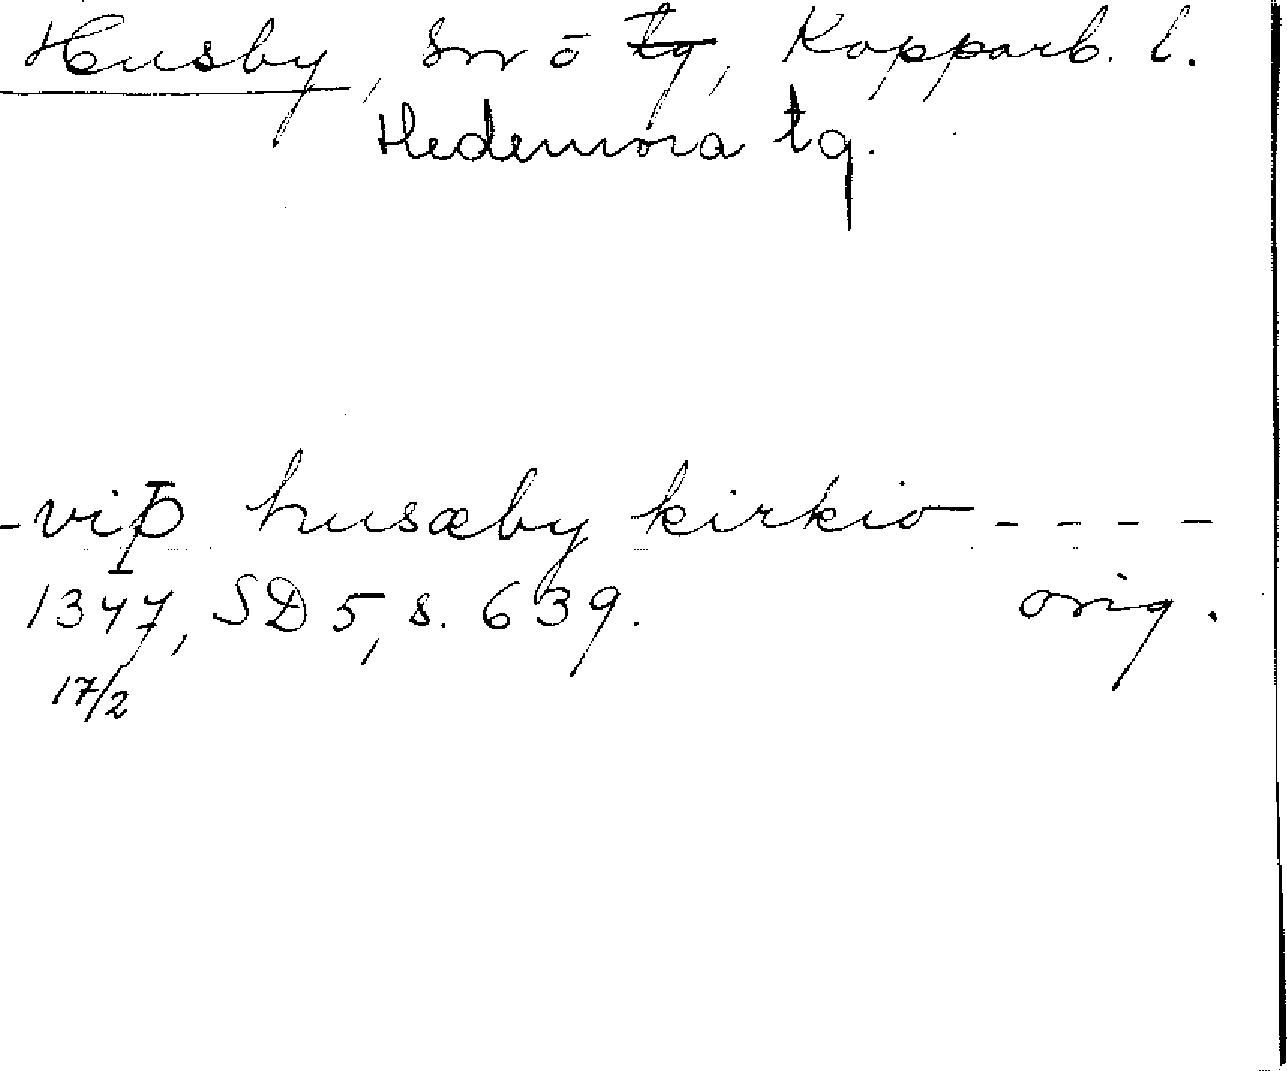 Husby, sn ō tg, Kopparb. l.
Hedemora tg.
-viþ husæby kirkio - - - -
1347, SD 5, s. 639. orig.
17/2